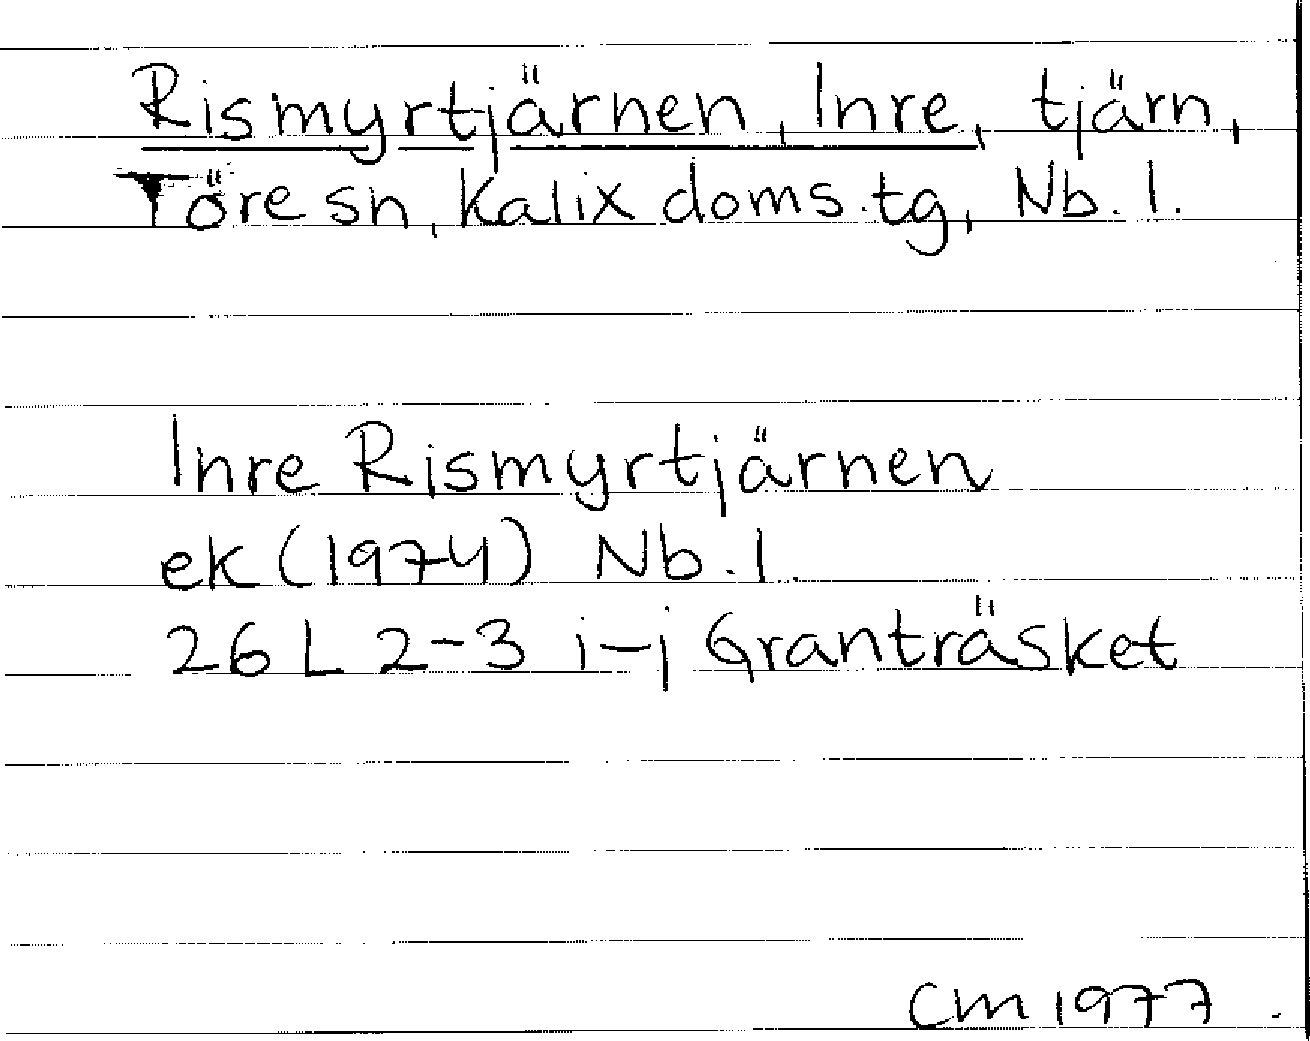 Rismyrtjärnen, Inre, tjärn,
Töre sn, Kalix doms.tg, Nb. l.
Inre Rismyrtjärnen
ek (1974) Nb. l
26 L 2-3 i-j Granträsket
CM 1977.